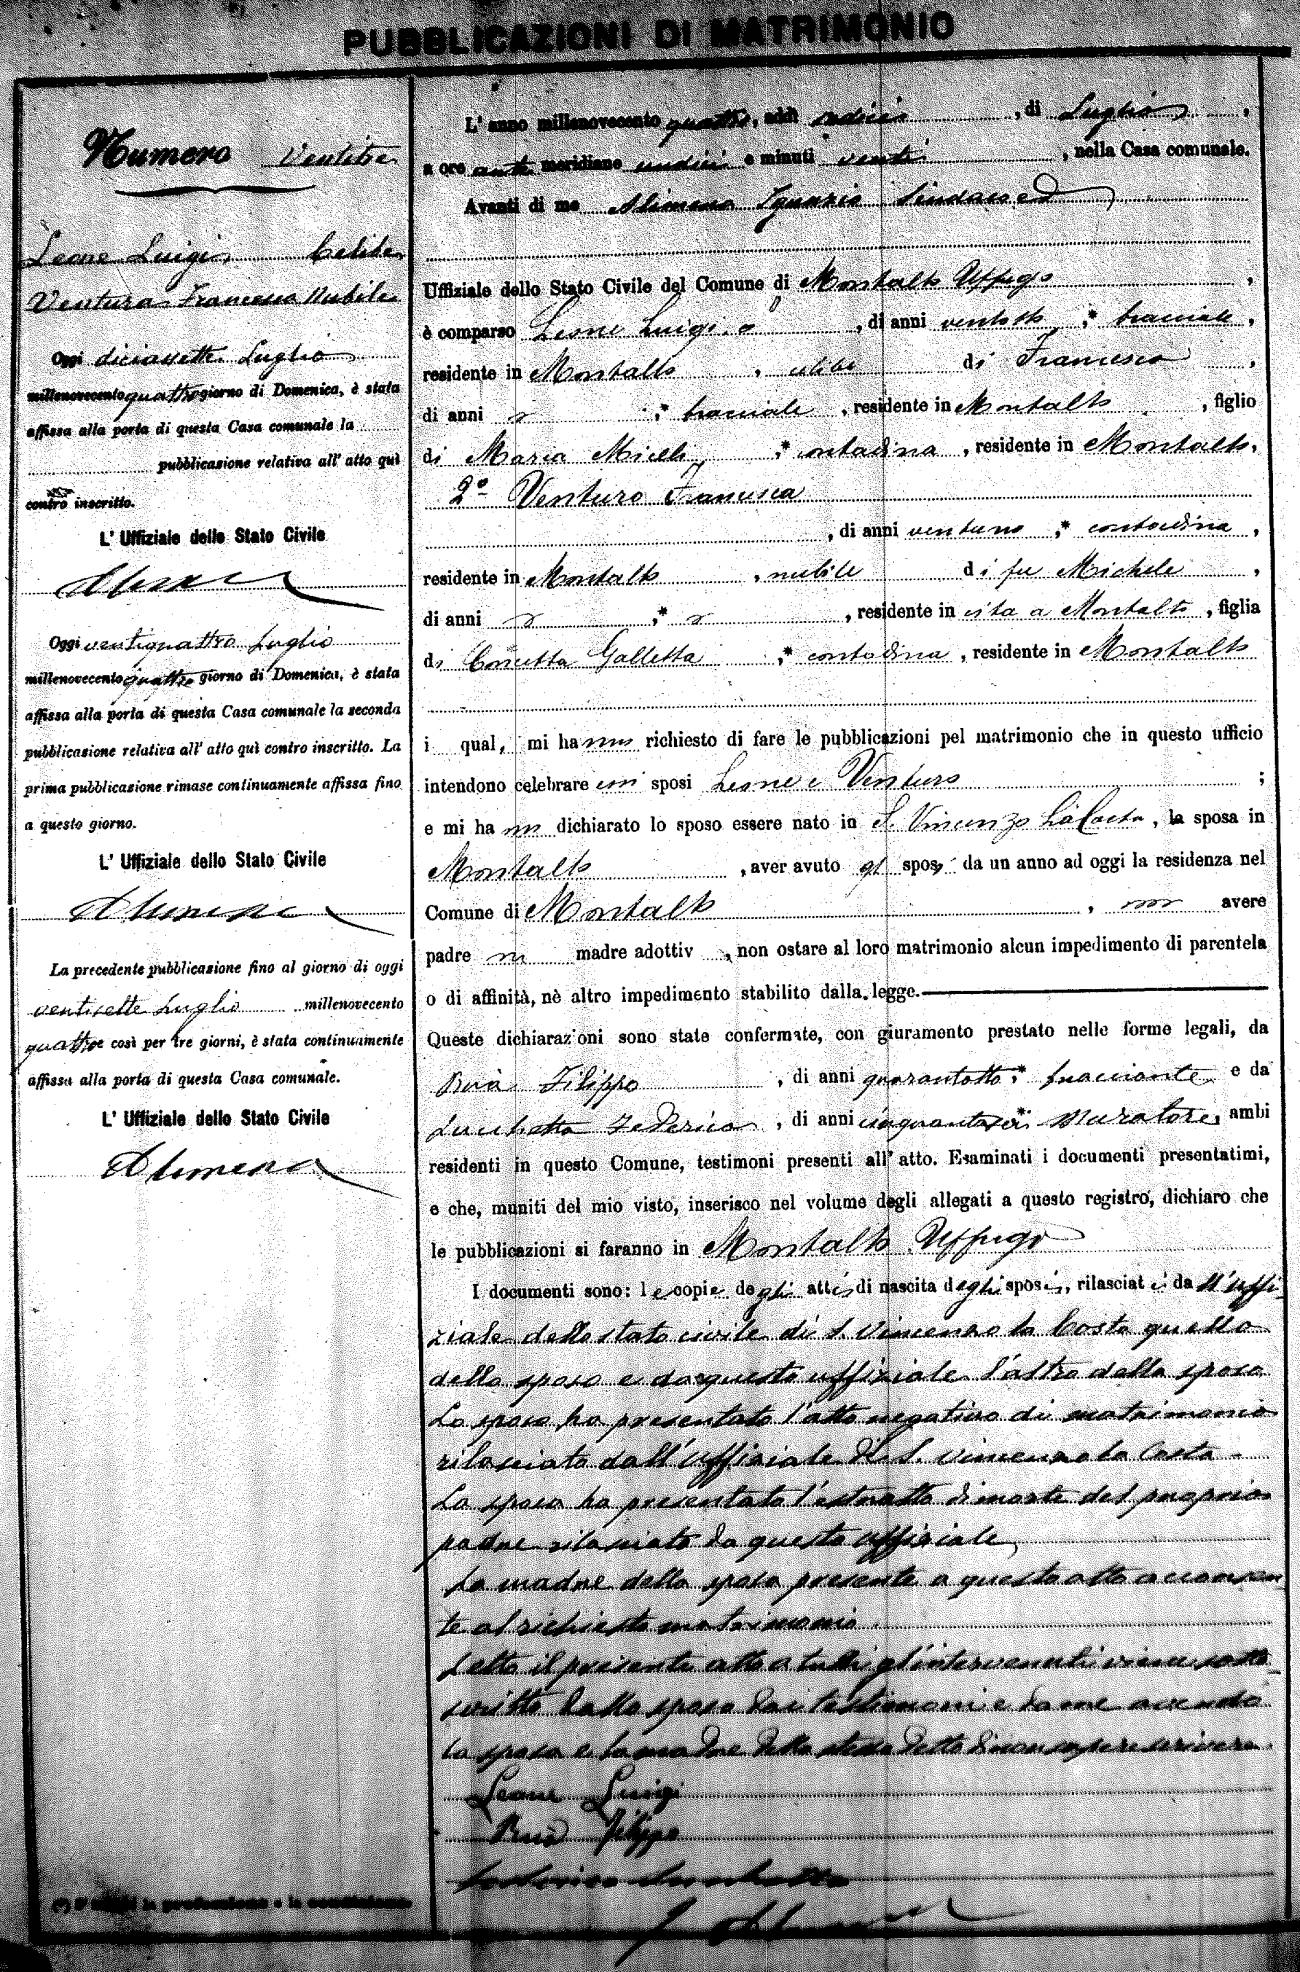 PUBBLICAZIONI DI MATRIMONIO
Numero Ventitre
Leone Luigi Celibe
Ventura Francesca Nubile
Oggi diciassette Luglio
millenovecento quattro giorno di Domenica, è stata
affissa alla porta di questa Casa comunale la
pubblicazione relativa all' atto quì
contro inscritto.
L' Uffiziale dello Stato Civile
Alimena
Oggi ventiquattro Luglio
millenovecento quattro giorno di Domenica, è stata
affissa alla porta di questa Casa comunale la seconda
pubblicazione relativa all' atto quì contro inscritto. La
prima pubblicazione rimase continuamente affissa fino
a questo giorno.
L' Uffiziale dello Stato Civile
Alimena
La precedente pubblicazione fino al giorno di oggi
ventisette Luglio millenovecento
quattro e così per tre giorni, è stata continuamente
affissa alla porta di questa Casa comunale.
L' Uffiziale dello Stato Civile
Alimena
L' anno millenovecento quattro, addì sedici, di Luglio,
a ore anti meridiane undici e minuti venti, nella Casa comunale.
Avanti di me Alimena Ignazio Sindaco ed
Uffiziale dello Stato Civile del Comune di Montalto Uffugo,
è comparso Leone Luigi, di anni ventotto,* bracciale,
residente in Montalto, celibe di Francesco,
di anni ,* bracciale, residente in Montalto, figlio
di Maria Micelli,* contadina, residente in Montalto,
2° Ventura Francesca
, di anni ventuno,* contadina,
residente in Montalto, nubile di fu Michele,
di anni ,* , residente in vita a Montalto, figlia
di Concetta Galletta,* contadina, residente in Montalto
i qual, mi hanno richiesto di fare le pubblicazioni pel matrimonio che in questo ufficio
intendono celebrare essi sposi Leone e Ventura;
e mi hanno dichiarato lo sposo essere nato in S. Vincenzo La Costa, la sposa in
Montalto, aver avuto gl sposi da un anno ad oggi la residenza nel
Comune di Montalto, non avere
padre ni madre adottiv , non ostare al loro matrimonio alcun impedimento di parentela
o di affinità, nè altro impedimento stabilito dalla legge.
Queste dichiarazioni sono state confermate, con giuramento prestato nelle forme legali, da
Ruà Filippo, di anni quarantotto,* bracciante e da
Lucchetta Federico, di anni cinquantasei* Muratore, ambi
residenti in questo Comune, testimoni presenti all' atto. Esaminati i documenti presentatimi,
e che, muniti del mio visto, inserisco nel volume degli allegati a questo registro, dichiaro che
le pubblicazioni si faranno in Montalto Uffugo
I documenti sono: le copie degli atti di nascita degli sposi, rilasciati dall'uffi-
ziale dello stato civile di S. Vincenzo la Costa quello
dello sposo e da questo uffiziale l'altro della sposa
Lo sposo ha presentato l'atto negativo di matrimonio
rilasciato dall'Uffiziale di S. Vincenzo la Costa -
La sposa ha presentato l'estratto di morte del proprio
padre rilasciato da questo uffiziale
La madre della sposa presente a questo atto acconsen
te al richiesto matrimonio.
Letto il presente atto a tutti gl'intervenuti viene sotto-
scritto dallo sposo dai testimoni e da me avendo
la sposa e la madre della stessa detto di non sapere scrivere.
Leone Luigi
Ruà Filippo
Federico Lucchetta
I. Alimena
(*) la professione o la condizione